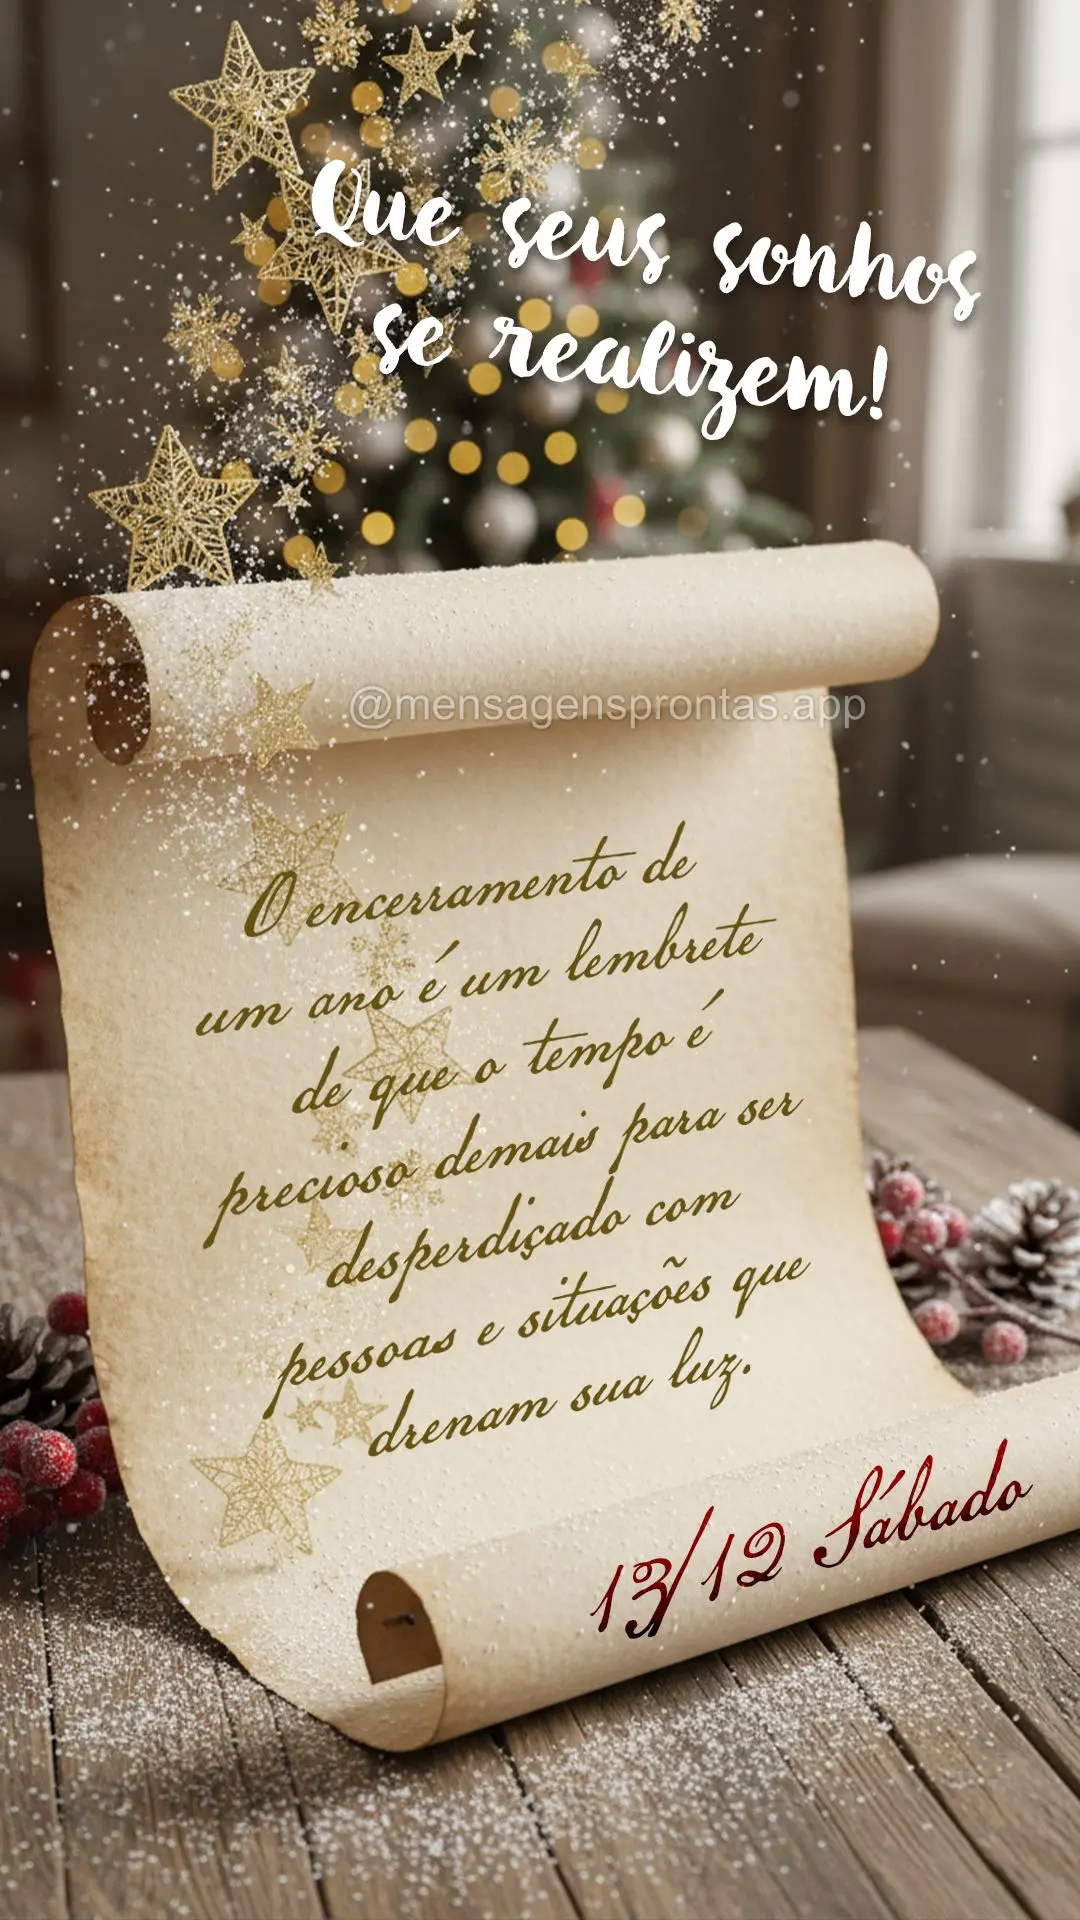 Que seus sonhos
se realizem!
@mensagensprontas.app
O encerramento de
um ano é um lembrete
de que o tempo é
precioso demais para ser
desperdiçado com
pessoas e situações que
drenam sua luz.
13/12 Sábado